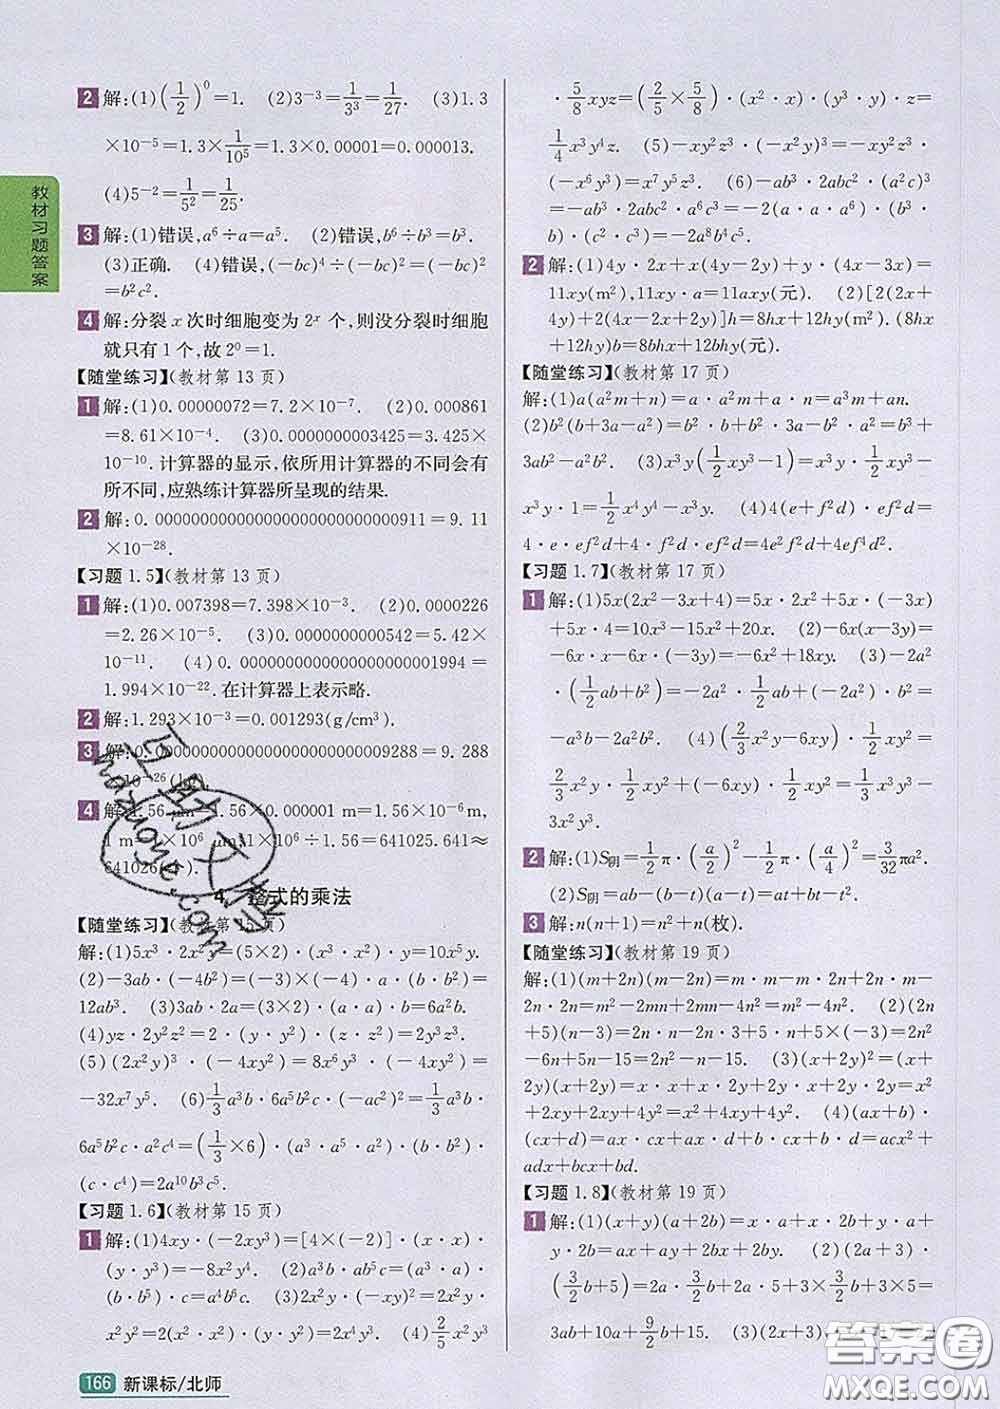 教材习题答案
2 解:(1)(1/2)⁰=1. (2)3⁻³=1/3³=1/27. (3)1.3
×10⁻⁵=1.3×1/10⁵=1.3×0.00001=0.000013.
(4)5⁻²=1/5²=1/25.
3 解:(1)错误,a⁶÷a=a⁵. (2)错误,b⁶÷b³=b³.
(3)正确. (4)错误,(-bc)⁴÷(-bc)²=(-bc)²
=b²c².
4 解:分裂 x 次时细胞变为 2ˣ 个,则没分裂时细胞
就只有 1 个,故 2⁰=1.
【随堂练习】(教材第 13 页)
1 解:(1)0.00000072=7.2×10⁻⁷. (2)0.000861
=8.61×10⁻⁴. (3)0.0000000003425=3.425×
10⁻¹⁰.计算器的显示,依所用计算器的不同会有
所不同,应熟练计算器所呈现的结果.
2 解:0.000000000000000000000000000911=9.11
×10⁻²⁸.
【习题 1.5】(教材第 13 页)
1 解:(1)0.007398=7.398×10⁻³. (2)0.0000226
=2.26×10⁻⁵. (3)0.0000000000542=5.42×
10⁻¹¹. (4)0.0000000000000000000001994=
1.994×10⁻²².在计算器上表示略.
2 解:1.293×10⁻³=0.001293(g/cm³).
3 解:0.00000000000000000000000009288=9.288
×10⁻²⁶
4 解:1.56 μm=1.56×0.000001 m=1.56×10⁻⁶m,
1 m=1×10⁶ μm,1×10⁶÷1.56=641025.641≈
641026
4 整式的乘法
【随堂练习】(教材第 15 页)
解:(1)5x³·2x²y=(5×2)·(x³·x²)·y=10x⁵y.
(2)-3ab·(-4b²)=(-3)×(-4)·a·(b·b²)=
12ab³. (3)3ab·2a=(3×2)·(a·a)·b=6a²b.
(4)yz·2y²z²=2·(y·y²)·(z·z²)=2y³z³.
(5)(2x²y)³·(-4xy²)=8x⁶y³·(-4xy²)=
-32x⁷y⁵. (6)1/3a³b·6a⁵b²c·(-ac²)²=1/3a³b·
6a⁵b²c·a²c⁴=(1/3×6)·(a³·a⁵·a²)·(b·b²)·
(c·c⁴)=2a¹⁰b³c⁵.
【习题 1.6】(教材第 15 页)
1 解:(1)4xy·(-2xy³)=[4×(-2)]·(x·x)·
(y·y³)=-8x²y⁴. (2)a³b·ab⁵c=(a³·a)·
(b·b⁵)·c=a⁴b⁶c. (3)2x²y·(-xy)²=2x²y·
x²y²=2(x²·x²)·(y·y²)=2x⁴y³. (4)2/5x²y³
·5/8xyz=(2/5×5/8)·(x²·x)·(y³·y)·z=
1/4x³y⁴z. (5)-xy²z³·(-x²y)³=-xy²z³·
(-x⁶y³)=x⁷y⁵z³. (6)-ab³·2abc²·(a²c)³
=-ab³·2abc²·a⁶c³=-2(a·a·a⁶)·(b³·
b)·(c²·c³)=-2a⁸b⁴c⁵.
2 解:(1)4y·2x+x(4y-2y)+y·(4x-3x)=
11xy(m²),11xy·a=11axy(元). (2)[2(2x+
4y)+2(4x-2x+2y)]h=8hx+12hy(m²).(8hx
+12hy)b=8bhx+12bhy(元).
【随堂练习】(教材第 17 页)
解:(1)a(a²m+n)=a·a²m+a·n=a³m+an.
(2)b²(b+3a-a²)=b²·b+b²·3a-b²·a²=b³+
3ab²-a²b². (3)x³y(1/2xy³-1)=x³y·1/2xy³-
x³y·1=1/2x⁴y⁴-x³y. (4)4(e+f²d)·ef²d=
4·e·ef²d+4·f²d·ef²d=4e²f²d+4ef⁴d².
【习题 1.7】(教材第 17 页)
1 解:(1)5x(2x²-3x+4)=5x·2x²+5x·(-3x)
+5x·4=10x³-15x²+20x. (2)-6x(x-3y)=
-6x·x-6x·(-3y)=-6x²+18xy. (3)-2a²
·(1/2ab+b²)=-2a²·1/2ab+(-2a²)·b²=
-a³b-2a²b². (4)(2/3x²y-6xy)·1/2xy²=
2/3x²y·1/2xy²+(-6xy)·1/2xy²=1/3x³y³-
3x²y³.
2 解:(1)S阴=1/2π·(a/2)²-1/2π·(a/4)²=3/32πa².
(2)S阴=ab-(b-t)(a-t)=at+bt-t².
3 解:n(n+1)=n²+n(枚).
【随堂练习】(教材第 19 页)
解:(1)(m+2n)(m-2n)=m·m-m·2n+2n·m-
2n·2n=m²-2mn+2mn-4n²=m²-4n². (2)(2n
+5)(n-3)=2n·n-2n·3+5·n+5×(-3)=2n²
-6n+5n-15=2n²-n-15. (3)(x+2y)²=(x+
2y)(x+2y)=x·x+x·2y+2y·x+2y·2y=x²
+2xy+2xy+4y²=x²+4xy+4y². (4)(ax+b)·
(cx+d)=ax·cx+ax·d+b·cx+b·d=acx²+
adx+bcx+bd.
【习题 1.8】(教材第 19 页)
1 解:(1)(x+y)(a+2b)=x·a+x·2b+y·a+y·
2b=ax+ay+2bx+2by. (2)(2a+3)
·(3/2b+5)=2a·3/2b+2a·5+3×3/2b+3×5=
3ab+10a+9/2b+15. (3)(2x+3)
答案圈
MXQE.COM
166 新课标/北师